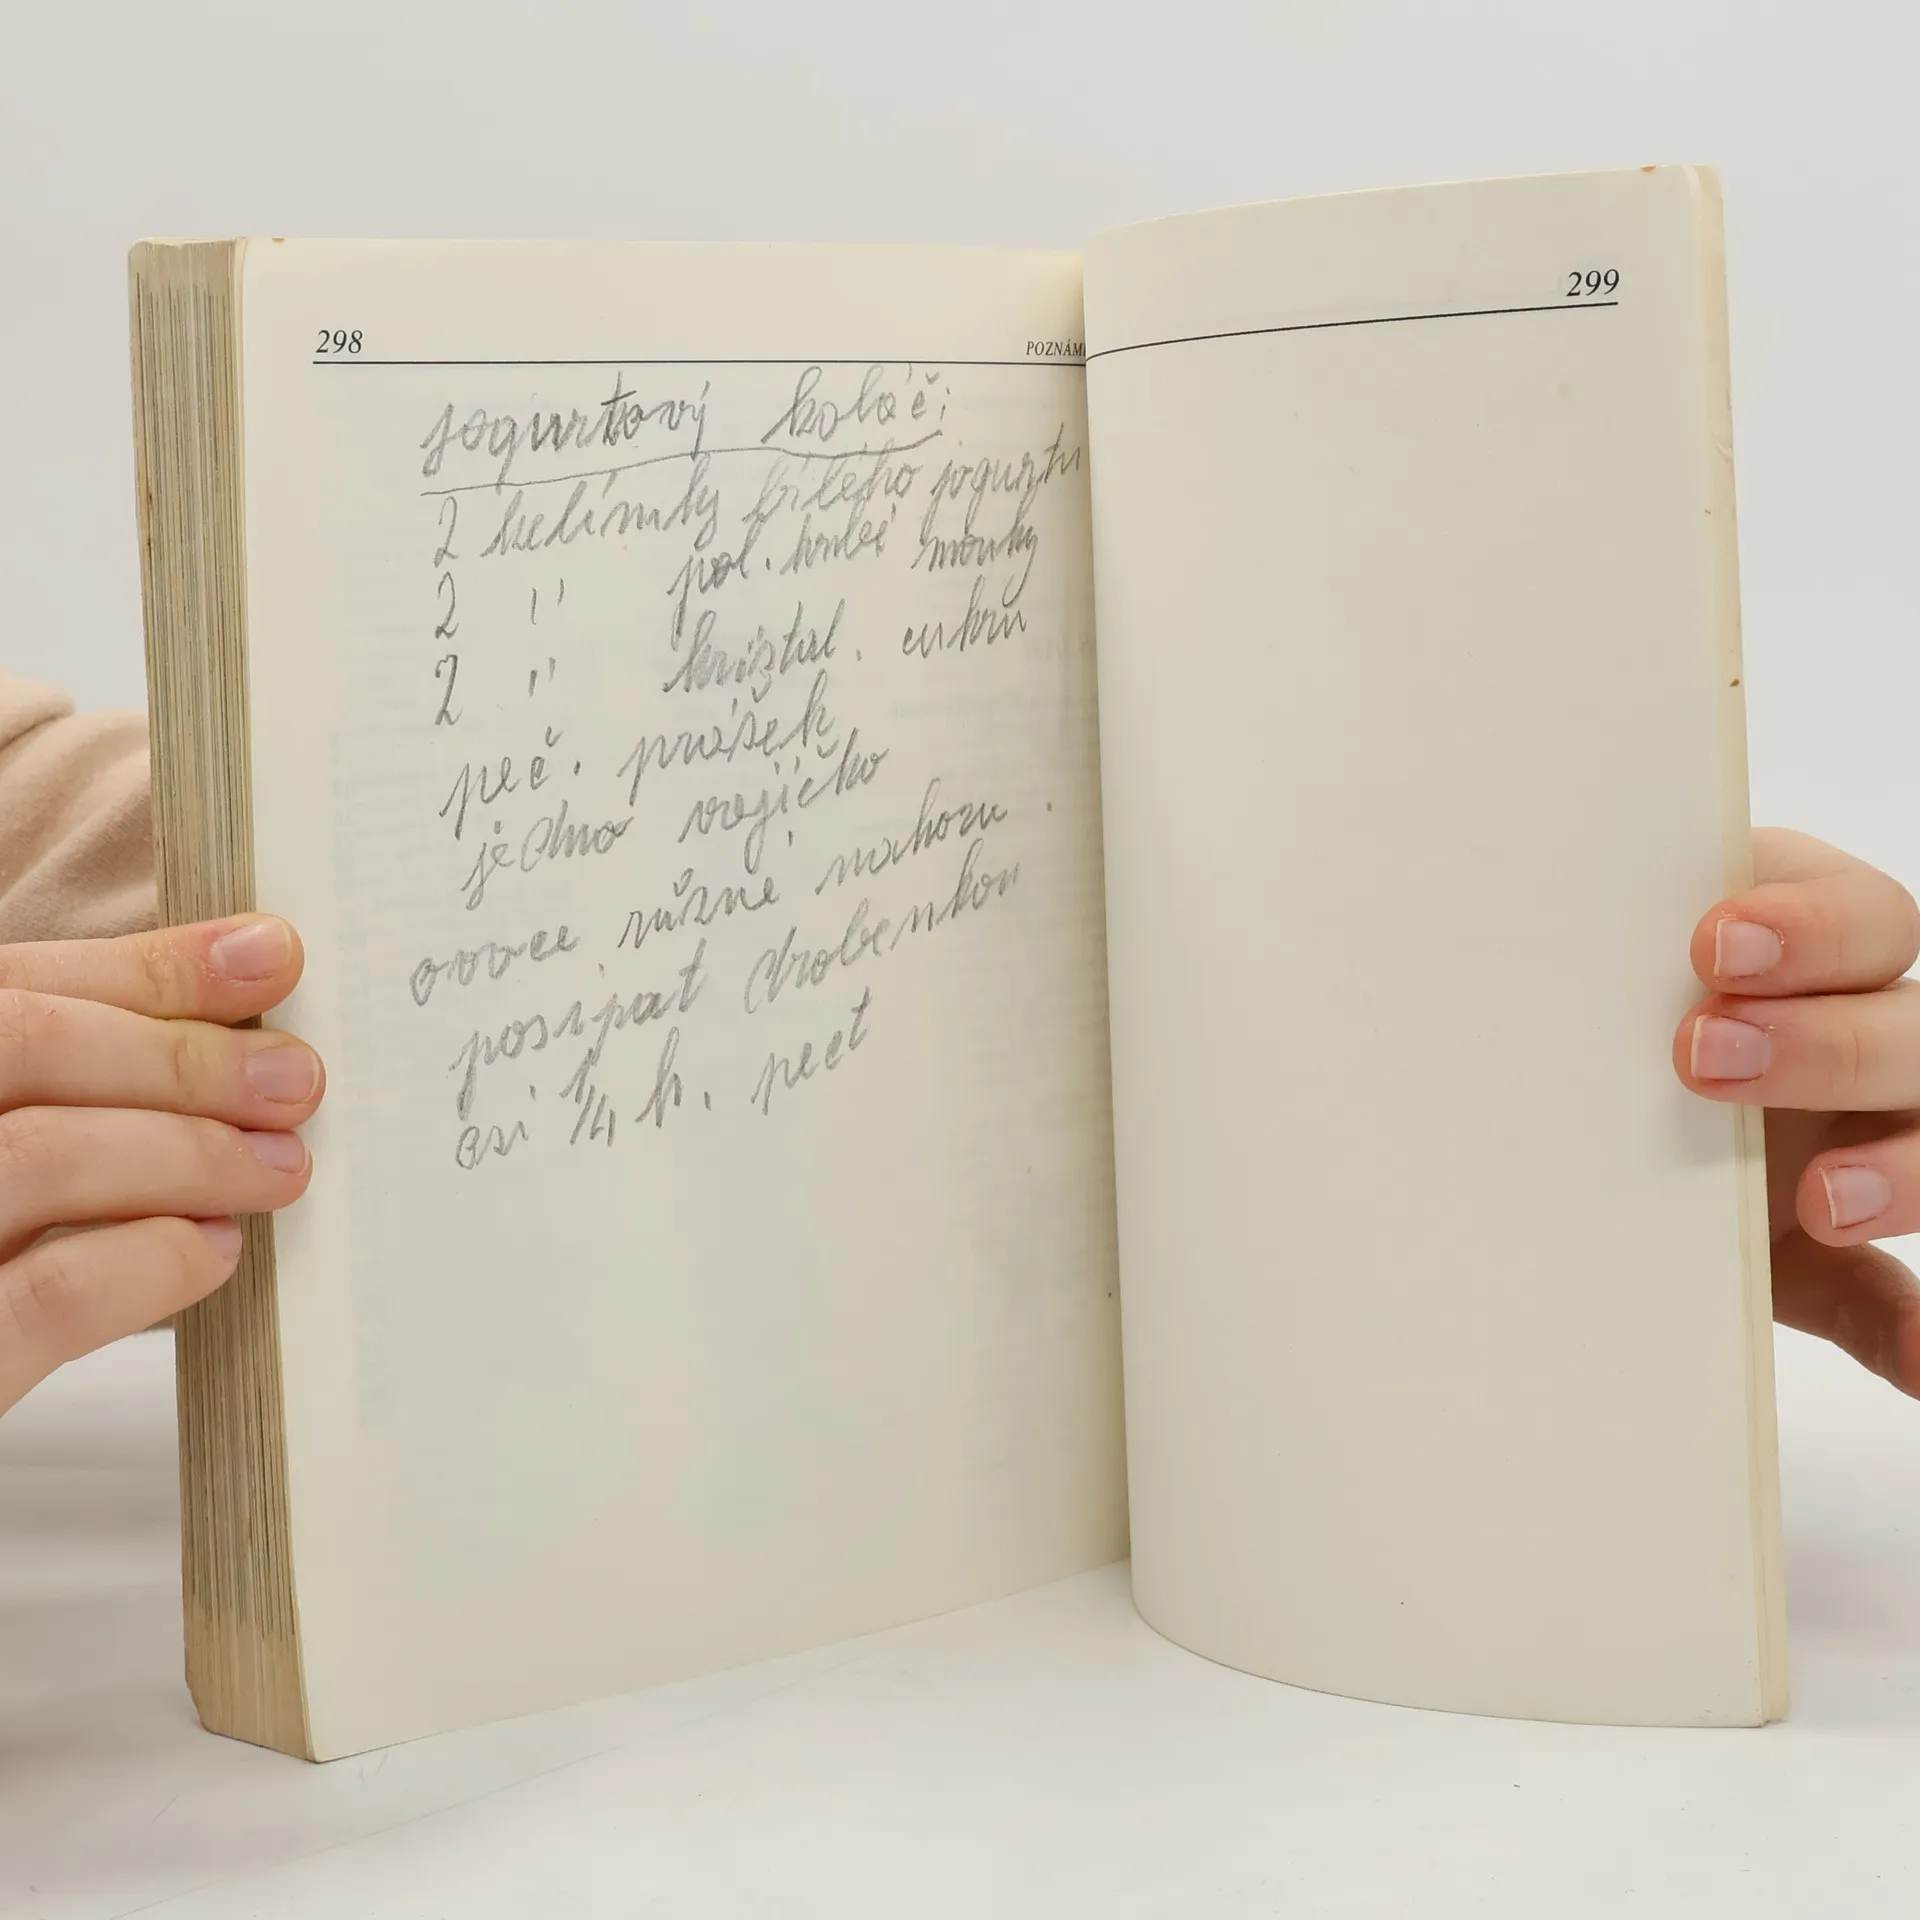 298
POZNÁM
jogurtový koláč:
2 kelímky bílého jogurtu
2 " pol. hrubé mouky
2 " kristal. cukru
peč. prášek
jedno vejíčko
ovoce různé nahoru.
posipat drobenkou
asi 1/4 h. pect
299